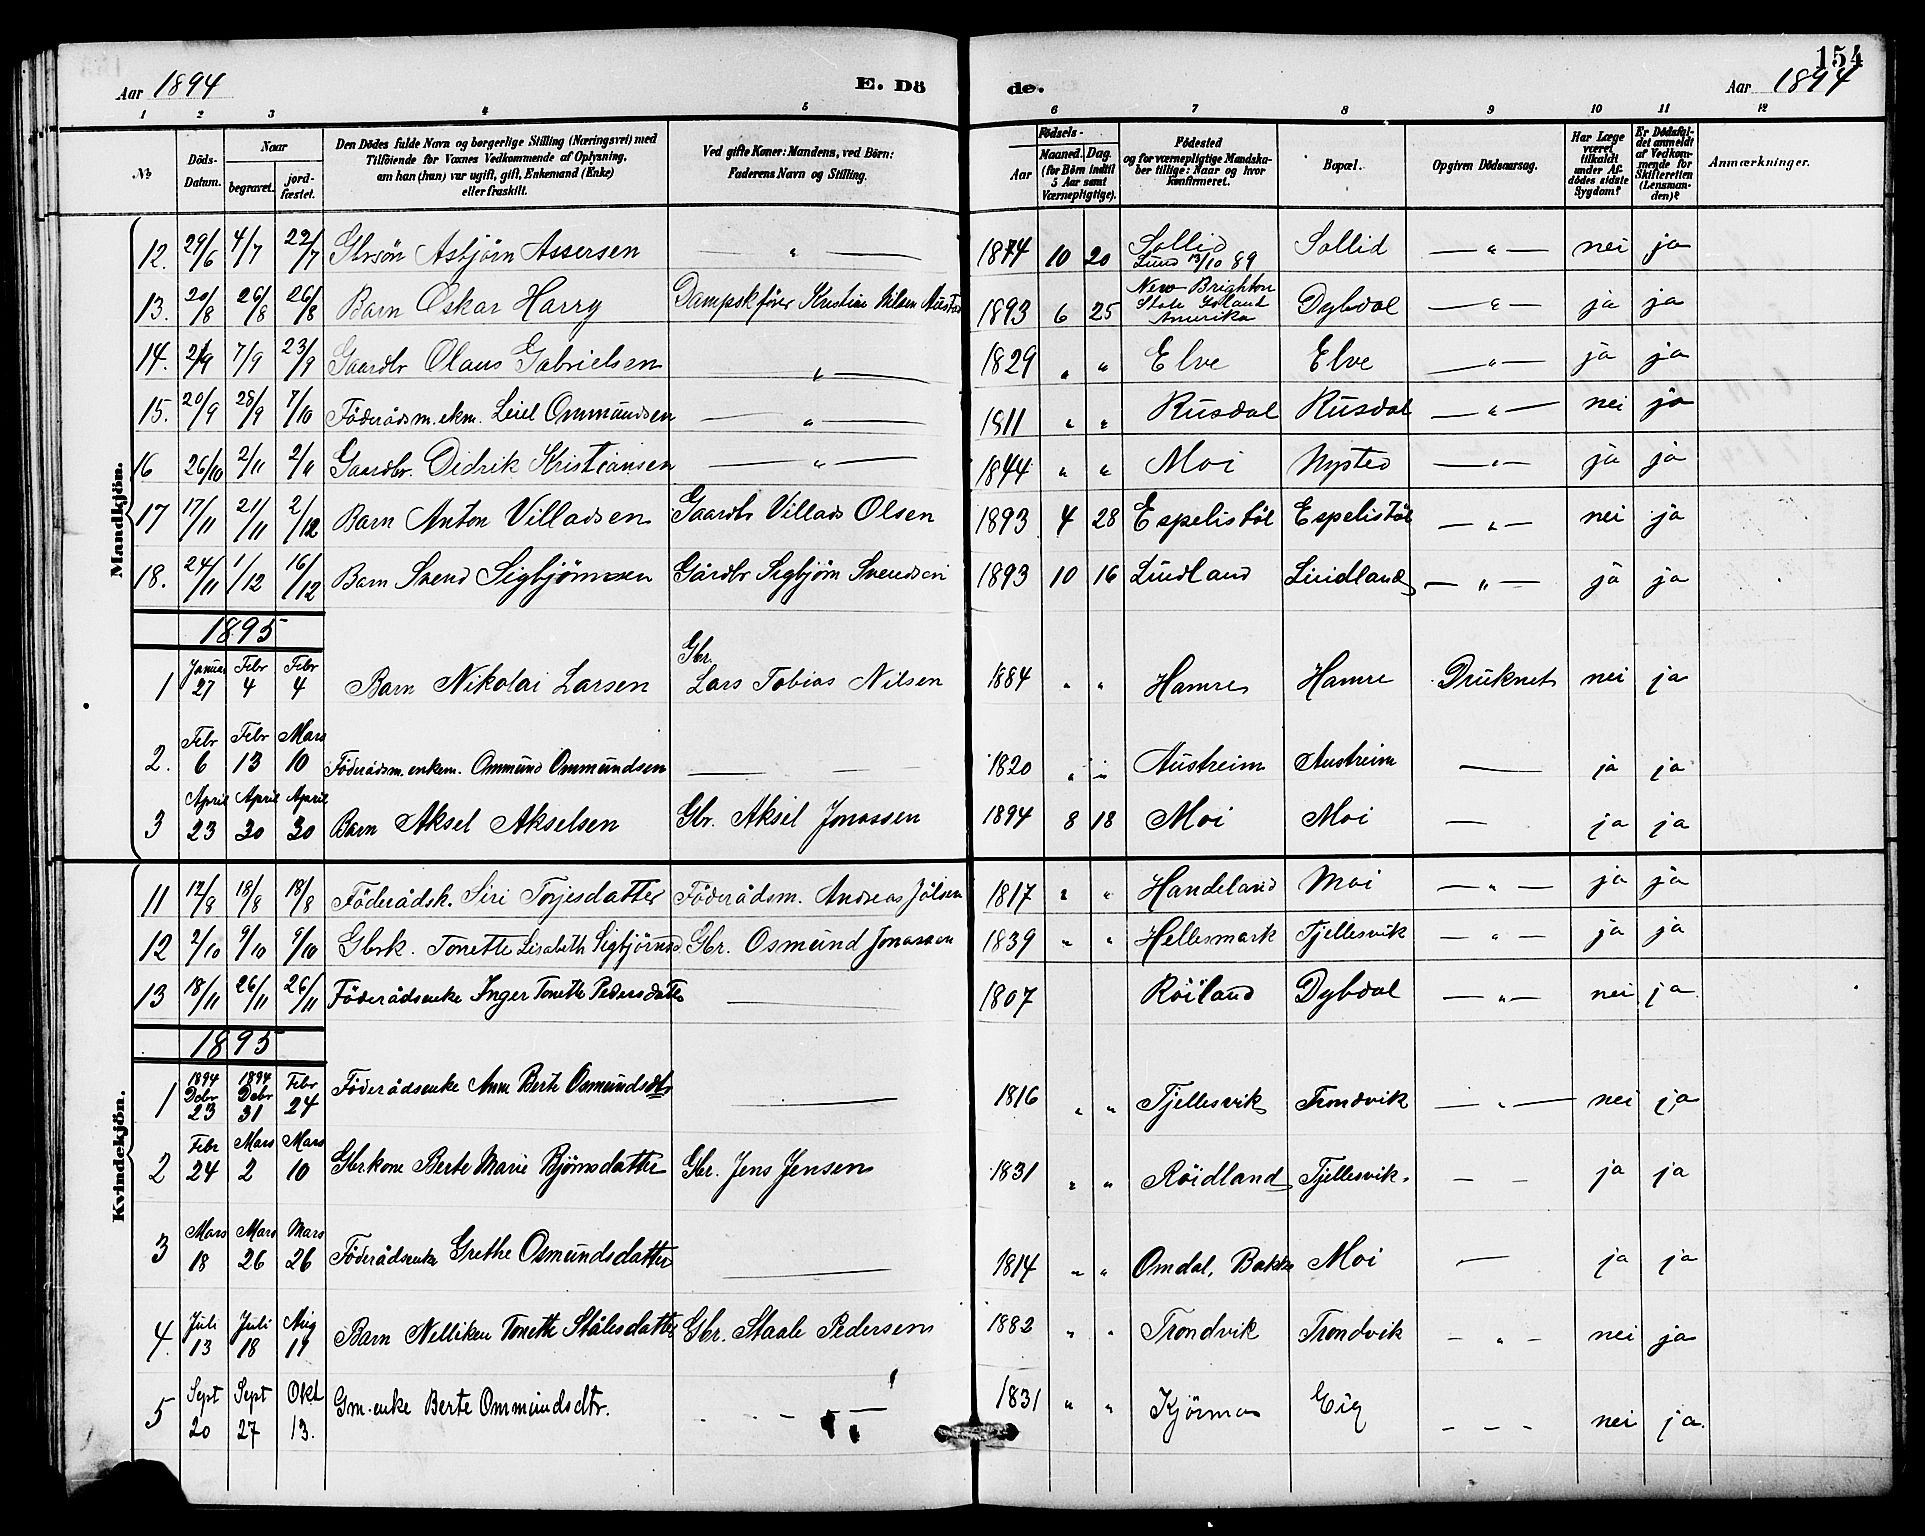 154
Aar 1894 E. Dö de. Aar 1894
1 2 3 4 5 6 7 8 9 10 11 12
№ Döds-Datum. Naar begravet. jordfæstet. Den Dödes fulde Navn og borgerlige Stilling (Næringsvei) med Tilföiende for Voxnes Vedkommende af Oplysning, om han (hun) var ugift, gift, Enkemand (Enke) eller fraskilt. Ved gifte Koner: Mandens, ved Børn: Faderens Navn og Stilling. Födsels- Aar Maaned. Dag. (for Børn indtil 5 Aar samt Værnepligtige). Födested og for værnepligtige Mandskaber tillige: Naar og hvor konfirmeret. Bopæl. Opgiven Dödsaarsag. Har Læge været tilkaldt under Afdödes sidste Sygdom? Er Dödsfaldet anmeldt af Vedkommende for Skifteretten (Lensmanden)? Anmærkninger.
Mandkjön.
12. 29/6 4/7 22/7 Gbrsön Asbjörn Assersen — " — 1874 10 20 Sollid Lund 13/10 89 Sollid — " — nei ja
13. 20/8 26/8 26/8 Barn Oskar Harry Dampskfører Kristian Nilsen 1893 6 25 New Brighton State Island Amerika Dybdal — " — ja ja
14. 2/9 7/9 23/9 Gaardbr Olaus Gabrielsen — " — 1829 " " Elve Elve — " — ja ja
15. 20/9 28/9 7/10 Föderådsm. ekm. Leiel Ommundsen — " — 1811 " " Rusdal Rusdal — " — nei ja
16 26/10 2/11 2/11 Gaardbr. Didrik Kristiansen — " — 1844 " " Moi Nysted — " — ja ja
17 17/11 21/11 2/12 Barn Anton Villadsen Gaardbr Villads Olsen 1893 4 28 Espelistöl Espelistöl — " — nei ja
18. 24/11 1/12 16/12 Barn Svend Sigbjörnsen Gårdbr Sigbjörn Svendsen 1893 10 16 Lindland Lindland — " — ja ja
1895
1 Januar 27 Febr 4 Febr 4 Barn Nikolai Larsen Gbr. Lars Tobias Nilsen 1884 " " Hamre Hamre Druknet nei ja
2. Febr 6 Febr 13 Mars 10 Föderådsm. enkem. Ommund Ommundsen — — 1820 " " Austreim Austreim — ja ja
3 April 23 April 30 April 30 Barn Aksel Akselsen Gbr. Aksel Jonassen 1894 8 18 Moi Moi — ja ja
Kvindekjön.
11 12/8 18/8 18/8 Föderådsk. Siri Torjesdatter Föderådsm. Andreas Jölsen 1817 " " Handeland Moi — " — ja ja
12 2/10 9/10 9/10 Gbrk. Tonette Lisabeth Sigbjörnsd Gbr. Osmund Jonassen 1839 " " Hellesmark Tjellesvik — " — ja ja
13 18/11 26/11 26/11 Föderådsenke Inger Tonette Pedersdatter — 1807 Röiland Dybdal — " — nei ja
1895
1 1894 Debr 23 1894 Debr 31 Febr 24 Föderådsenke Ane Berte Osmundsdtr — 1816 " " Tjellesvik Trondvik — " — nei ja
2 Febr 24 Mars 2 Mars 10 Gbrkone Berte Marie Bjömsdatter Gbr. Jens Jensen 1831 " " Röidland Tjellesvik. — — ja ja
3 Mars 18 Mars 26 Mars 26 Föderådsenke Grethe Osmundsdatter — 1814 " " Omdal, Bakke Moi — ja ja
4. Juli 13 Juli 18 Aug 19 Barn Nelliken Tonette Stålesdatter Gbr. Staale Pedersen 1882 " " Trondvik Trondvik — " — nei ja
5 Sept 20 Sept 27 Okt 13. Gm. enke Berte Ommundsdtr. — — 1831 " " Kjörmo Eig — — — nei ja.